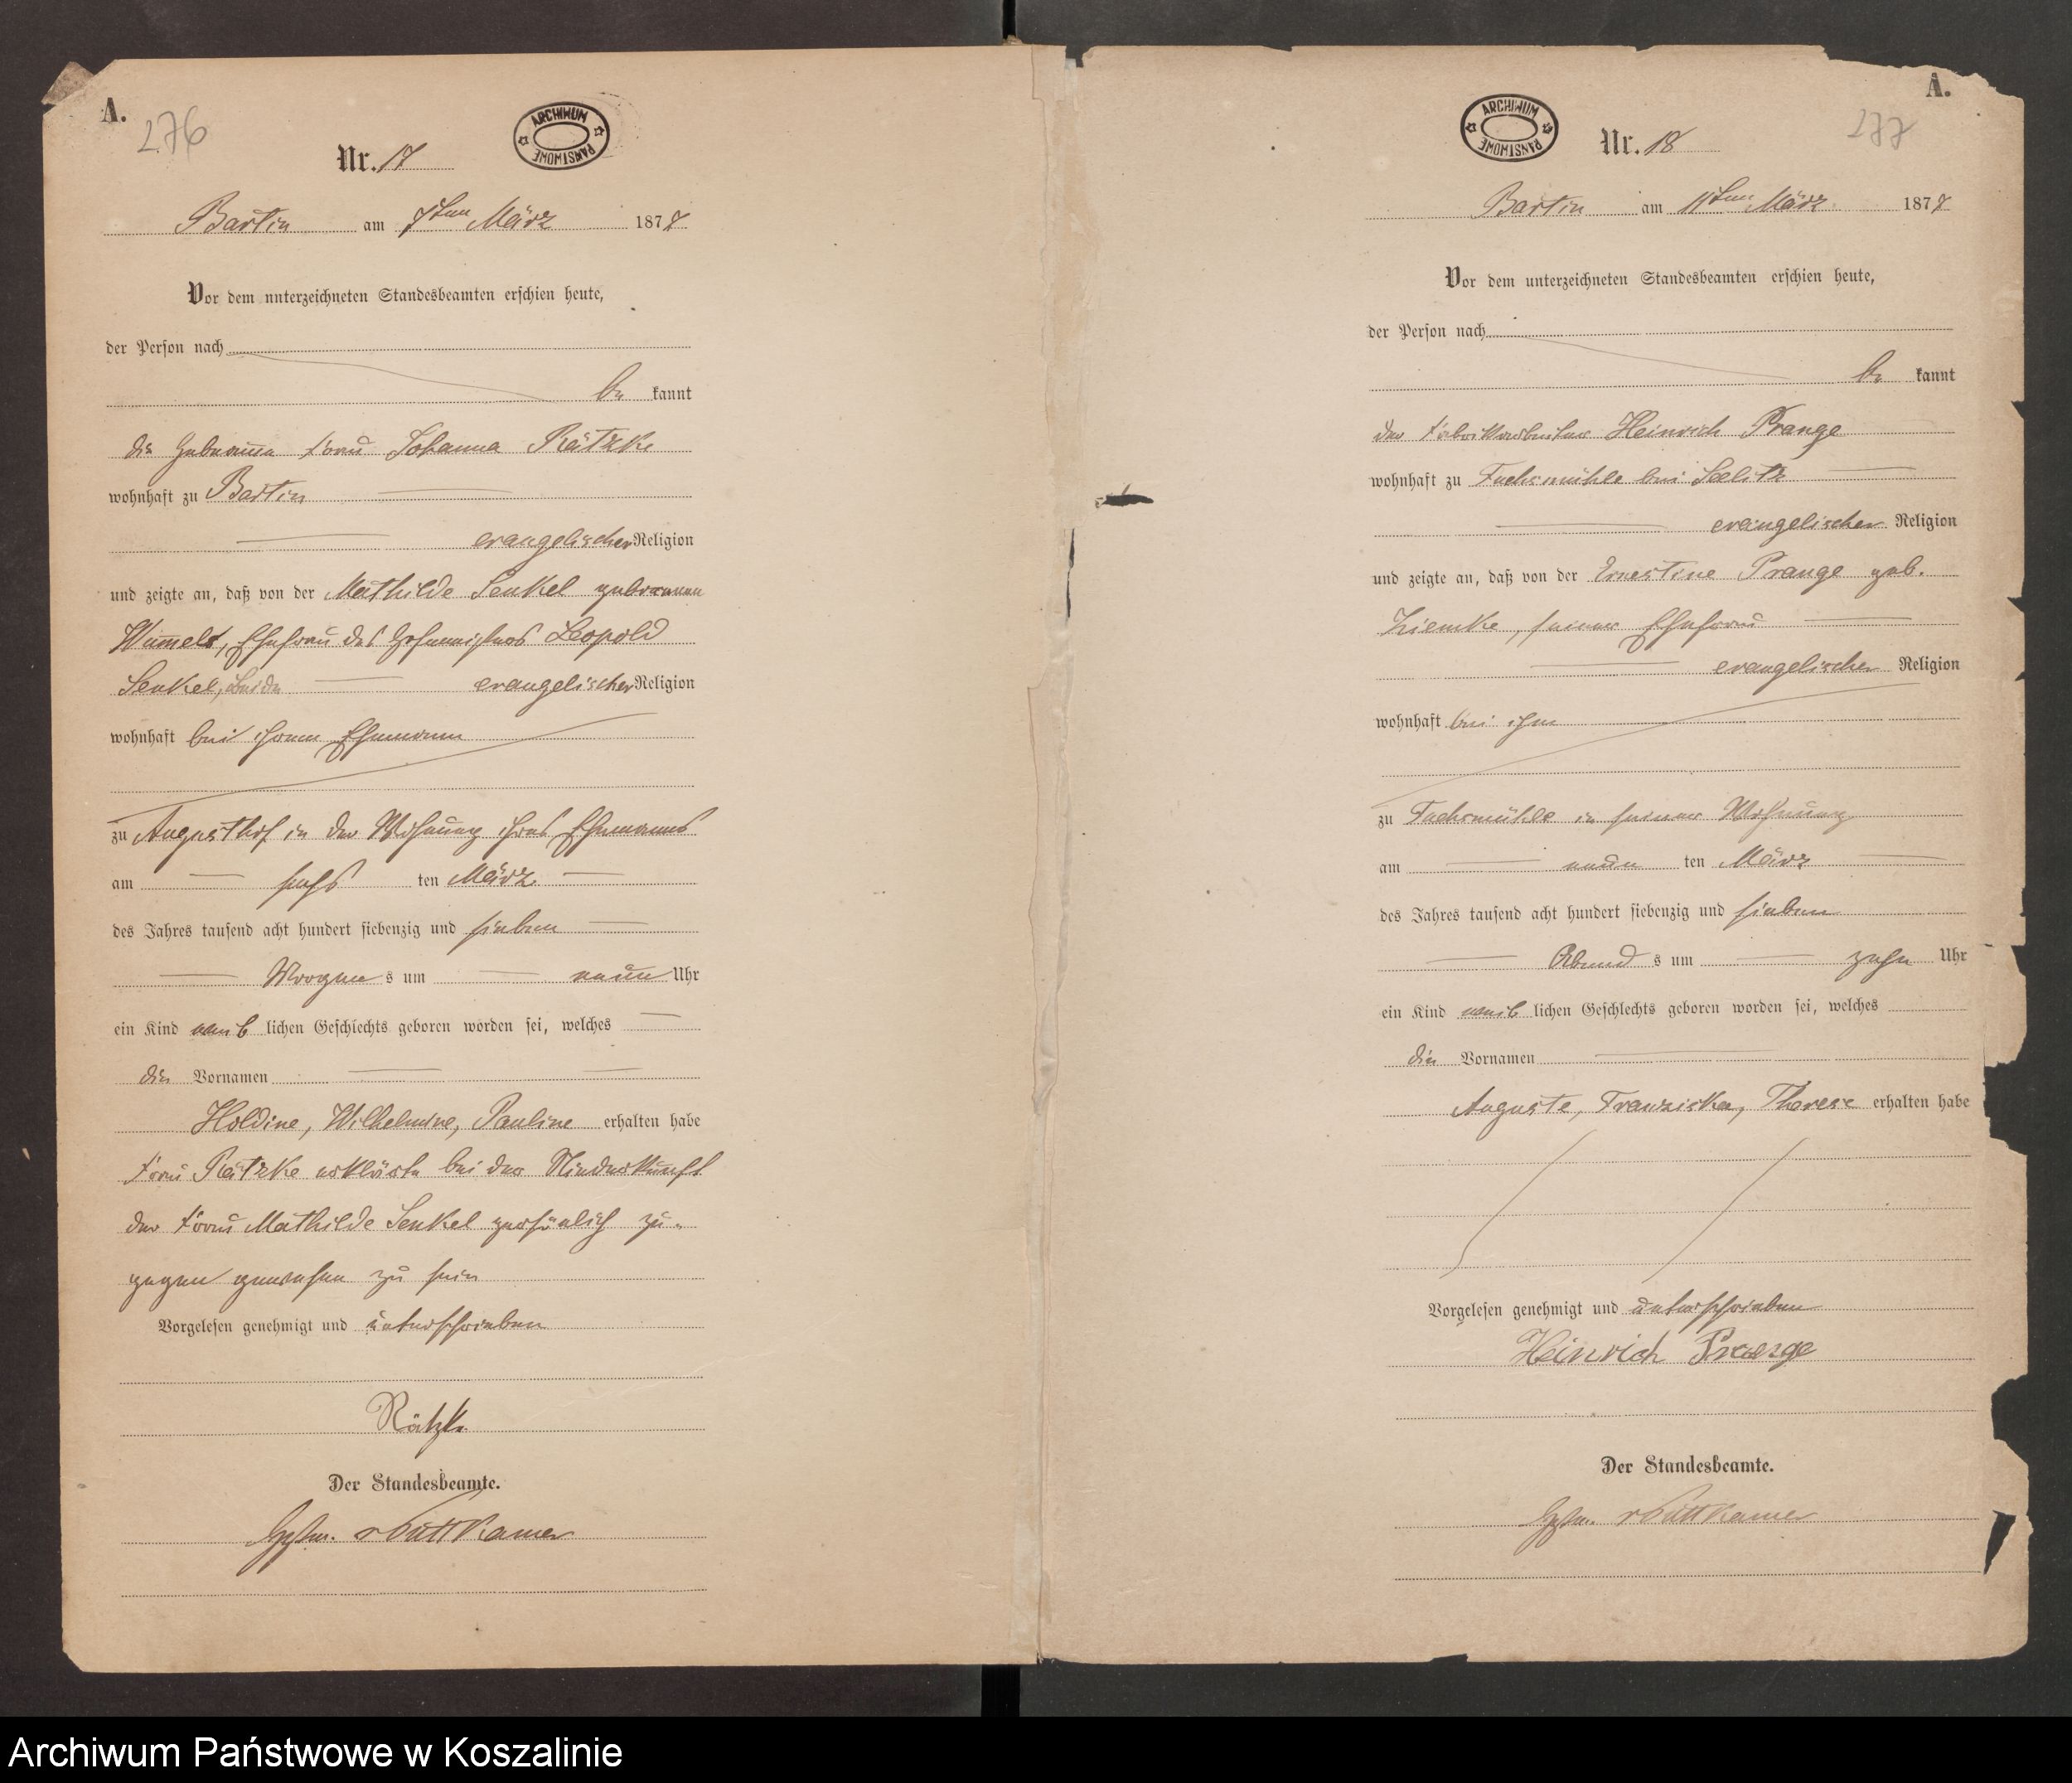 A.
276
ARCHIWUM PAŃSTWOWE
Nr. 17
Bartin am 7ten März 1877
Vor dem unterzeichneten Standesbeamten erschien heute,
der Person nach
be kannt
die Hebamme Frau Johanna Rätzke
wohnhaft zu Bartin
evangelischer Religion
und zeigte an, daß von der Mathilde Senkel geborenen
Ehefrau des Hofmeisters Leopold
Senkel, beide evangelischer Religion
wohnhaft bei ihrem Ehemann
zu Augusthof in der Wohnung ihres Ehemannes
am sechs ten März
des Jahres tausend acht hundert siebenzig und sieben
Morgen s um neun Uhr
ein Kind weib lichen Geschlechts geboren worden sei, welches
die Vornamen
Holdine, Wilhelmine, Pauline erhalten habe
Frau Rätzke erklärte bei der Niederkunft
der Frau Mathilde Senkel persönlich zu-
gegen gewesen zu sein
Vorgelesen genehmigt und unterschrieben
Rätzke
Der Standesbeamte.
v Puttkamer
A.
277
ARCHIWUM PAŃSTWOWE
Nr. 18
Bartin am 11ten März 1877
Vor dem unterzeichneten Standesbeamten erschien heute,
der Person nach
be kannt
der Fabrikarbeiter Heinrich Prange
wohnhaft zu Fuchsmühle bei Seelitz
evangelischer Religion
und zeigte an, daß von der Ernestine Prange geb.
Ziemke, seiner Ehefrau
evangelischer Religion
wohnhaft bei ihm
zu Fuchsmühle in seiner Wohnung
am neun ten März
des Jahres tausend acht hundert siebenzig und sieben
Abend s um zehn Uhr
ein Kind weib lichen Geschlechts geboren worden sei, welches
die Vornamen
Auguste, Franziska, Therese erhalten habe
Vorgelesen genehmigt und unterschrieben
Heinrich Prange
Der Standesbeamte.
v Puttkamer
Archiwum Państwowe w Koszalinie